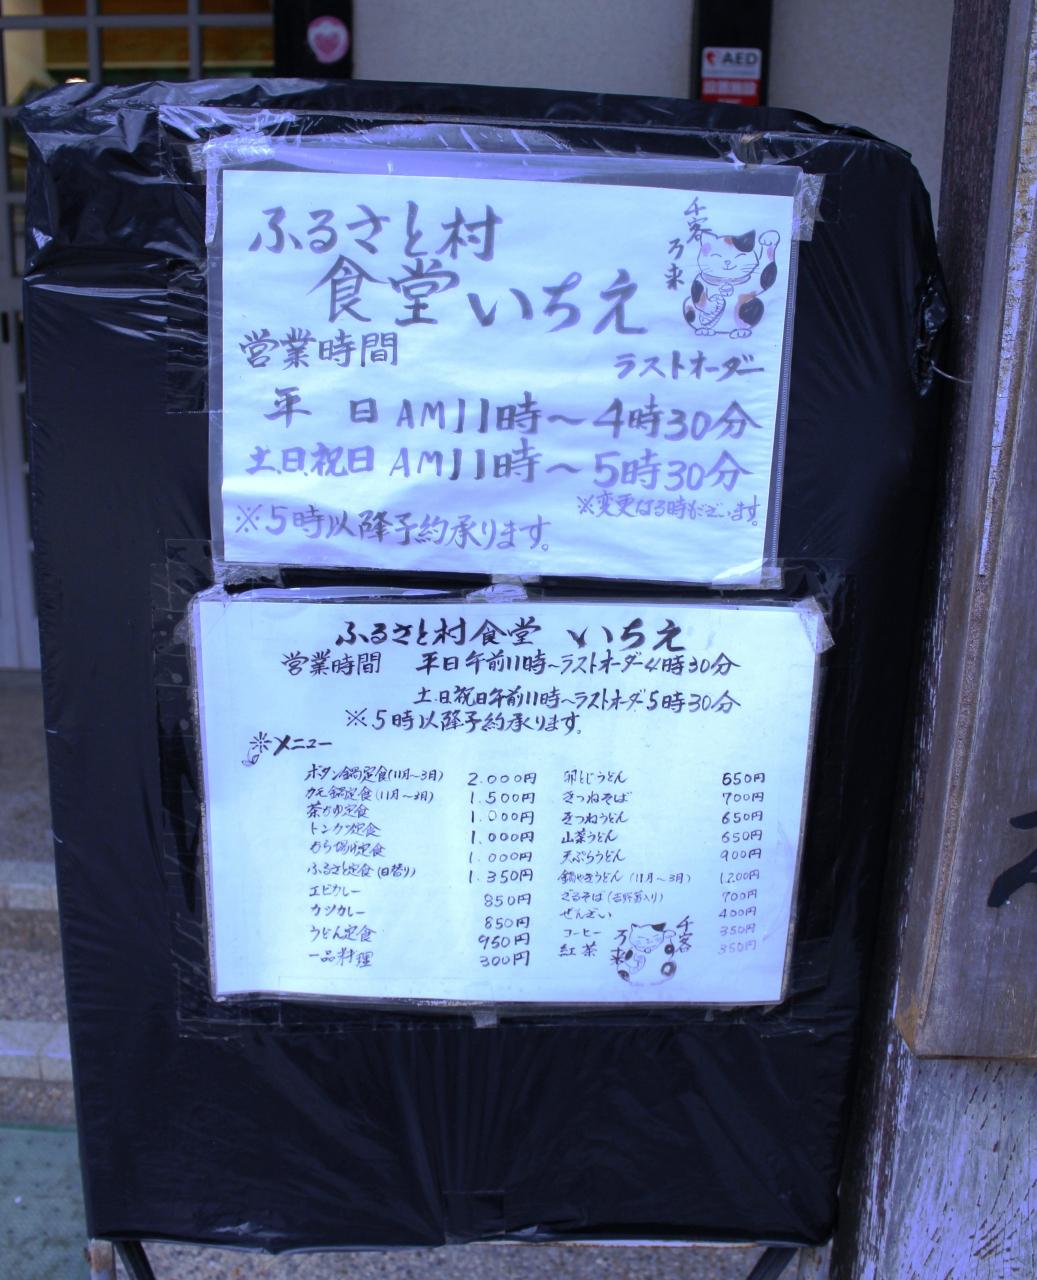 AED
ふるさと村
食堂いちえ
千客
万来
営業時間
ラストオーダー
平 日 AM11時〜4時30分
土.日.祝日 AM11時〜5時30分
※変更ある時もございます。
※5時以降予約承ります。
ふるさと村食堂 いちえ
営業時間 平日午前11時〜ラストオーダー4時30分
土.日祝日午前11時〜ラストオーダ-5時30分
※5時以降予約承ります。
メニュー
ボタン鍋定食(11月〜3月) 2.000円
カモ鍋定食(11月〜3月) 1.500円
茶がゆ定食 1.000円
トンカツ定食 1.000円
から揚げ定食 1.000円
ふるさと定食(日替り) 1.350円
エビカレー 850円
カツカレー 850円
うどん定食 950円
一品料理 300円
卵とじうどん 650円
きつねそば 700円
きつねうどん 650円
山菜うどん 650円
天ぷらうどん 900円
鍋やきうどん(11月〜3月) 1.200円
ざるそば(吉野葛入り) 700円
ぜんざい 400円
コーヒー 350円
紅茶 350円
千客
万来